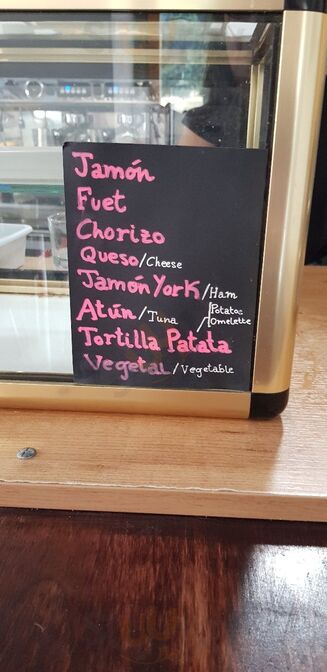 Jamón
Fuet
Chorizo
Queso/Cheese
Jamón York/Ham
Atún/Tuna
Potatoe
Omelette
Tortilla Patata
Vegetal/Vegetable